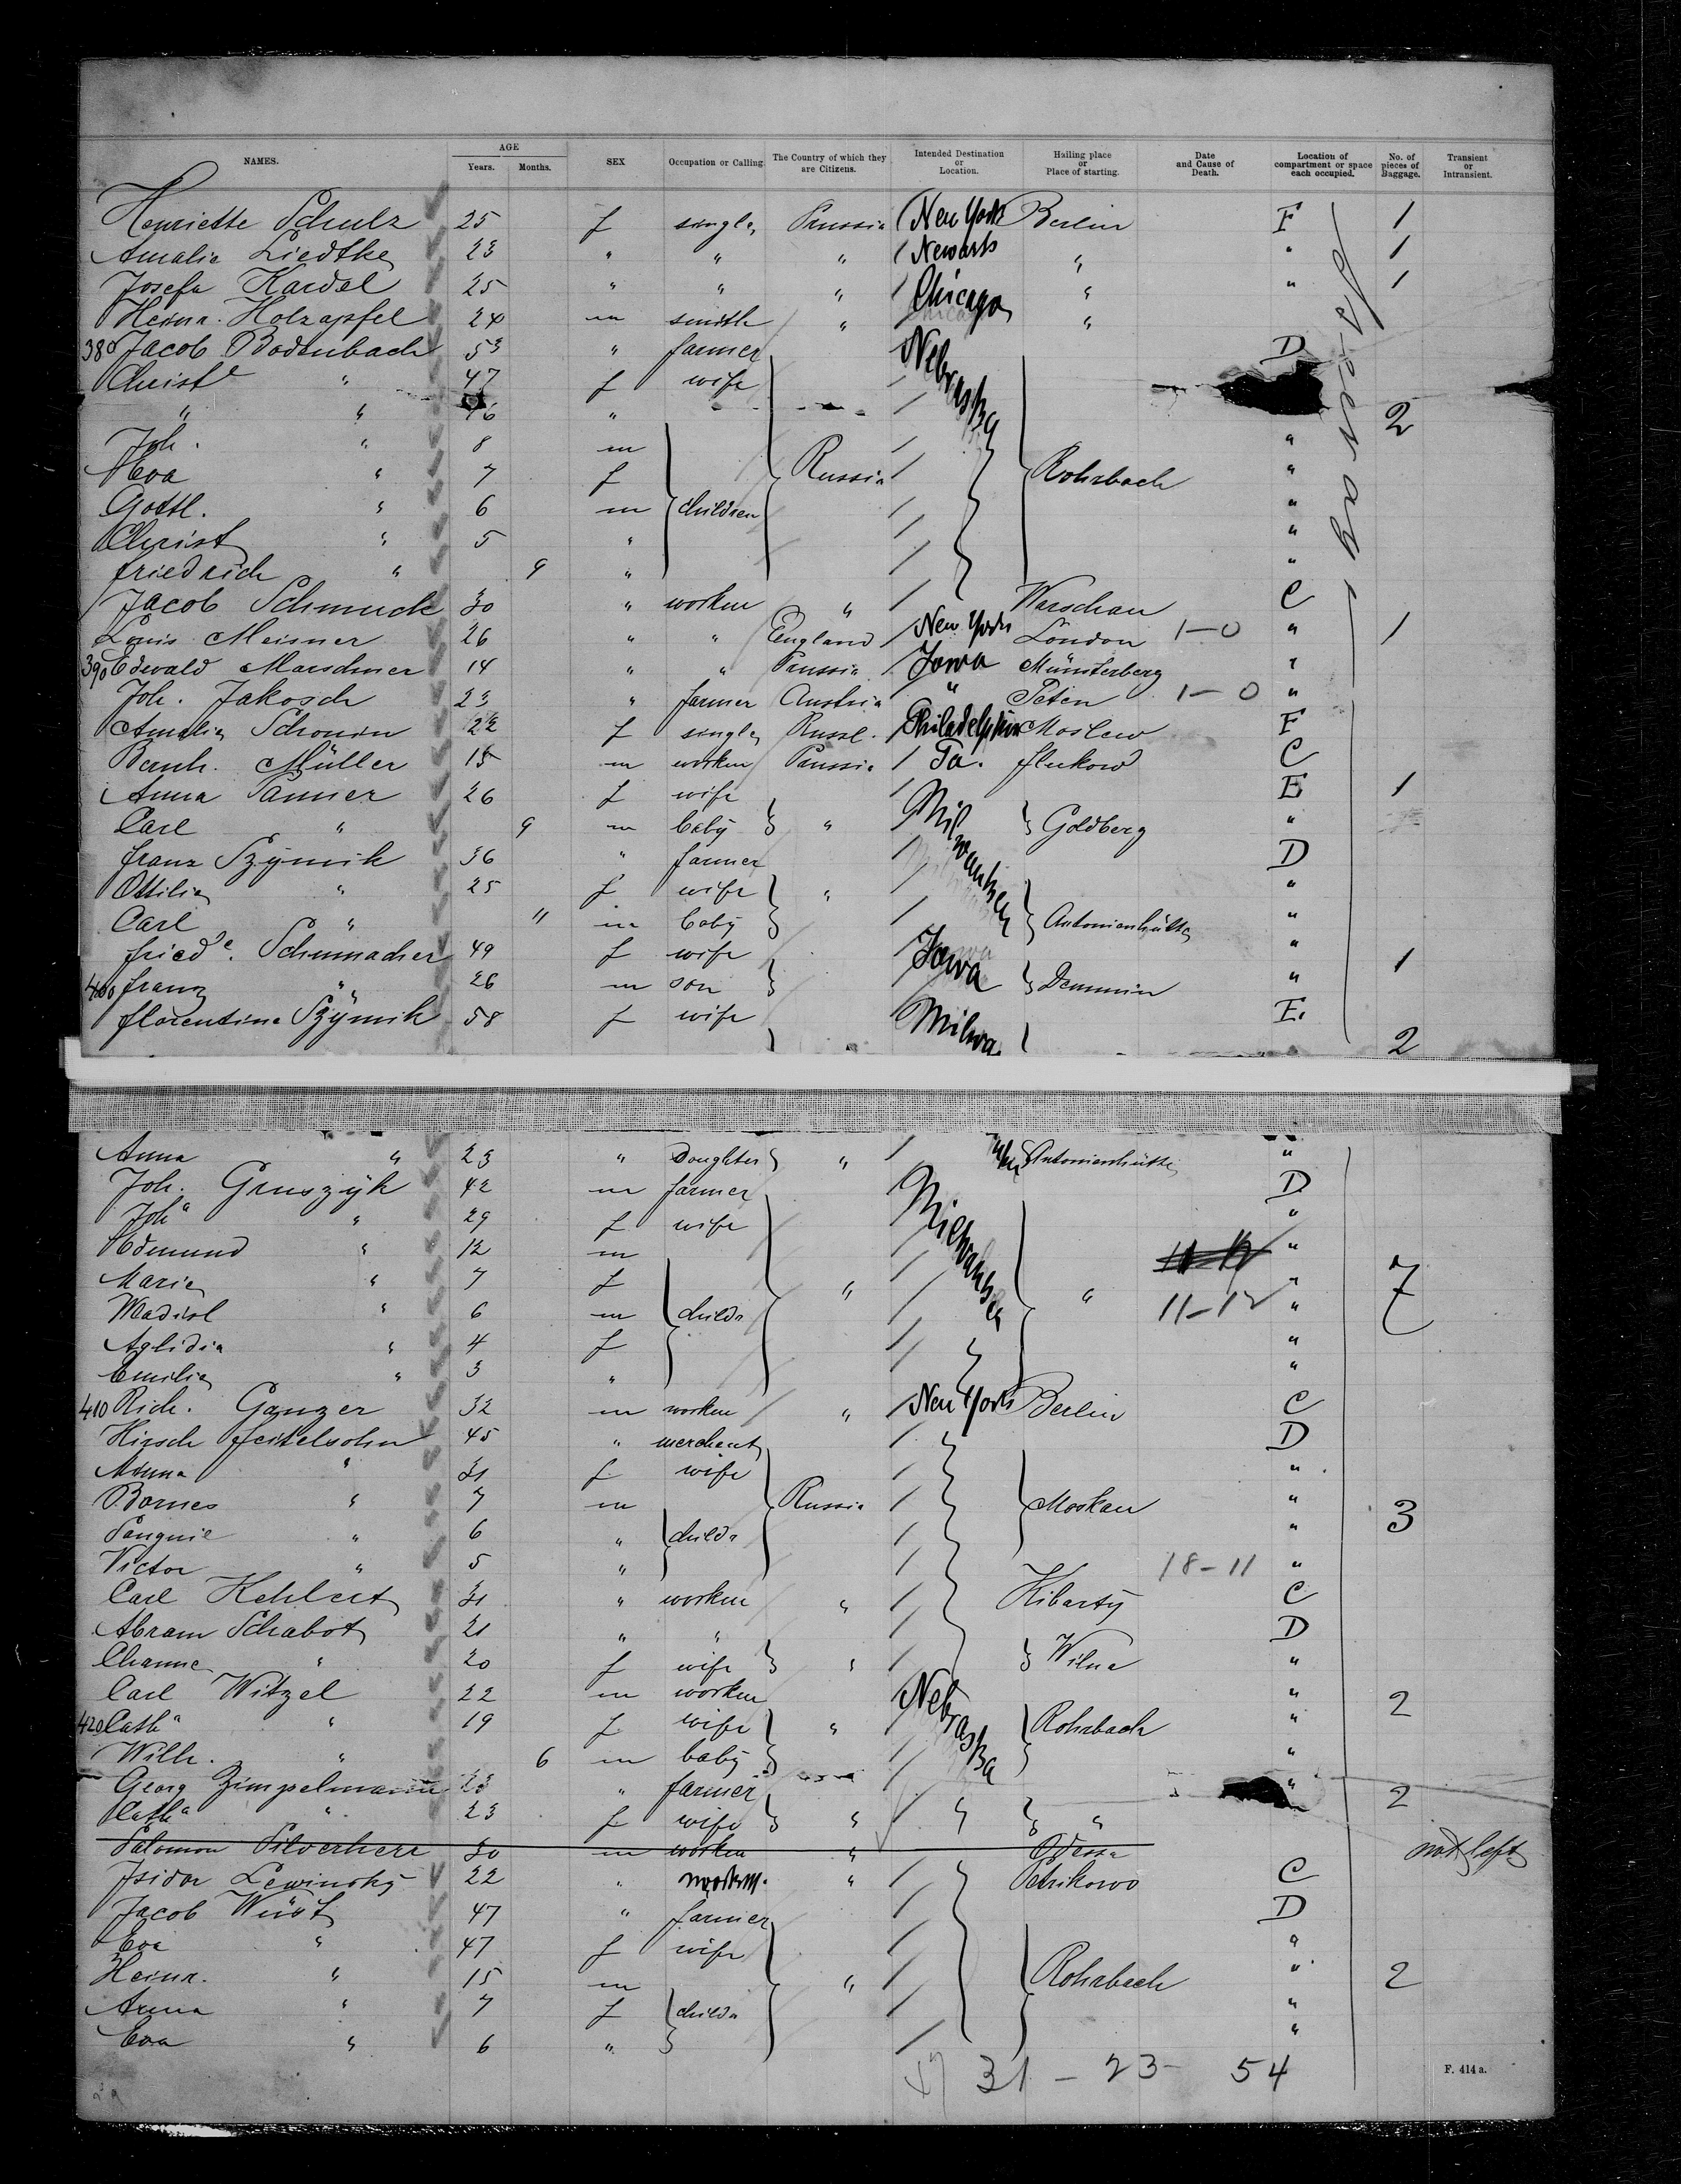 NAMES. AGE Years. Months. SEX Occupation or Calling. The Country of which they are Citizens. Intended Destination or Location. Hailing place or Place of starting. Date and Cause of Death. Location of compartment or space each occupied. No. of pieces of Baggage. Transient or Intransient.
Henriette Schulz 25 f single Prussia New York Berlin F 1
Amalie Liedtke 23 " " " Newark " " 1
Josefa Kardel 25 " " " Chicago " " 1
Heinr. Holzapfel 24 m smith " "
380 Jacob Bodenbach 53 " farmer Nebraska D
Christe " 47 f wife
" " 16 " 2
Joh. " 8 m "
Eva " 7 f Russia Rohrbach "
Gottl. " 6 m children "
Christ " 5 " "
Friedrich " 9 " "
Jacob Schmuck 30 " worken " Warschau C
Louis Meisner 26 " " England New York London 1-0 " 1
390 Edwald Marschner 14 " " Prussia Iowa Münsterberg "
Joh. Jakosch 23 " farmer Austria " Peten 1-0 "
Amalie Schonin 22 f single Russl. Philadelphia Moslew F
Bernh. Müller 15 m worken Prussia Pa. Flukow C
Anna Panier 26 f wife E 1
Carl " 9 m baby " Milwaukee Goldberg "
Franz Szymik 36 " farmer D
Ottilie " 25 f wife " "
Carl " 11 m baby Antonienhütte "
Friede. Schumacher 49 f wife Iowa " 1
400 Franz " 26 m son Demmin "
Florentine Szymik 58 f wife Milwa E. 2
Anna " 23 " Doughter " Antonienhütte "
Joh. Gruszyk 42 m farmer Milwaukee D
Joha " 29 f wife "
Edmund " 12 m "
Marie " 7 f " 7
Wladisl " 6 m childr " " 11-12 "
Aglidia " 4 f "
Emilie " 3 " "
410 Rich. Ganzer 32 m worken " New York Berlin C
Hirsch Jeitelsohn 45 " merchant D
Minna " 31 f wife "
Bornes " 7 m Russia Moskau " 3
Panguie " 6 " childr "
Victor " 5 " 18-11 "
Carl Kehlert 31 " worken " Kibarty C
Abram Schabot 21 " " D
Channe " 20 f wife " Wilna "
Carl Witzel 22 m worken Nebraska " 2
420 Catha " 19 f wife " Rohrbach "
Wilh. " 6 m baby "
Georg Zimpelmann 23 " farmer " 2
Catha " 23 f wife " " "
Salomon Silverherr 30 m worken " Odessa not left
Isidor Lewinsky 22 " worken " Petrikowo C
Jacob Wüst 47 " farmer D
Eva " 47 f wife "
Heinr. " 15 m " Rohrbach " 2
Anna " 7 f childr "
Eva " 6 " "
31 - 23 - 54
F. 414 a.
Steerage